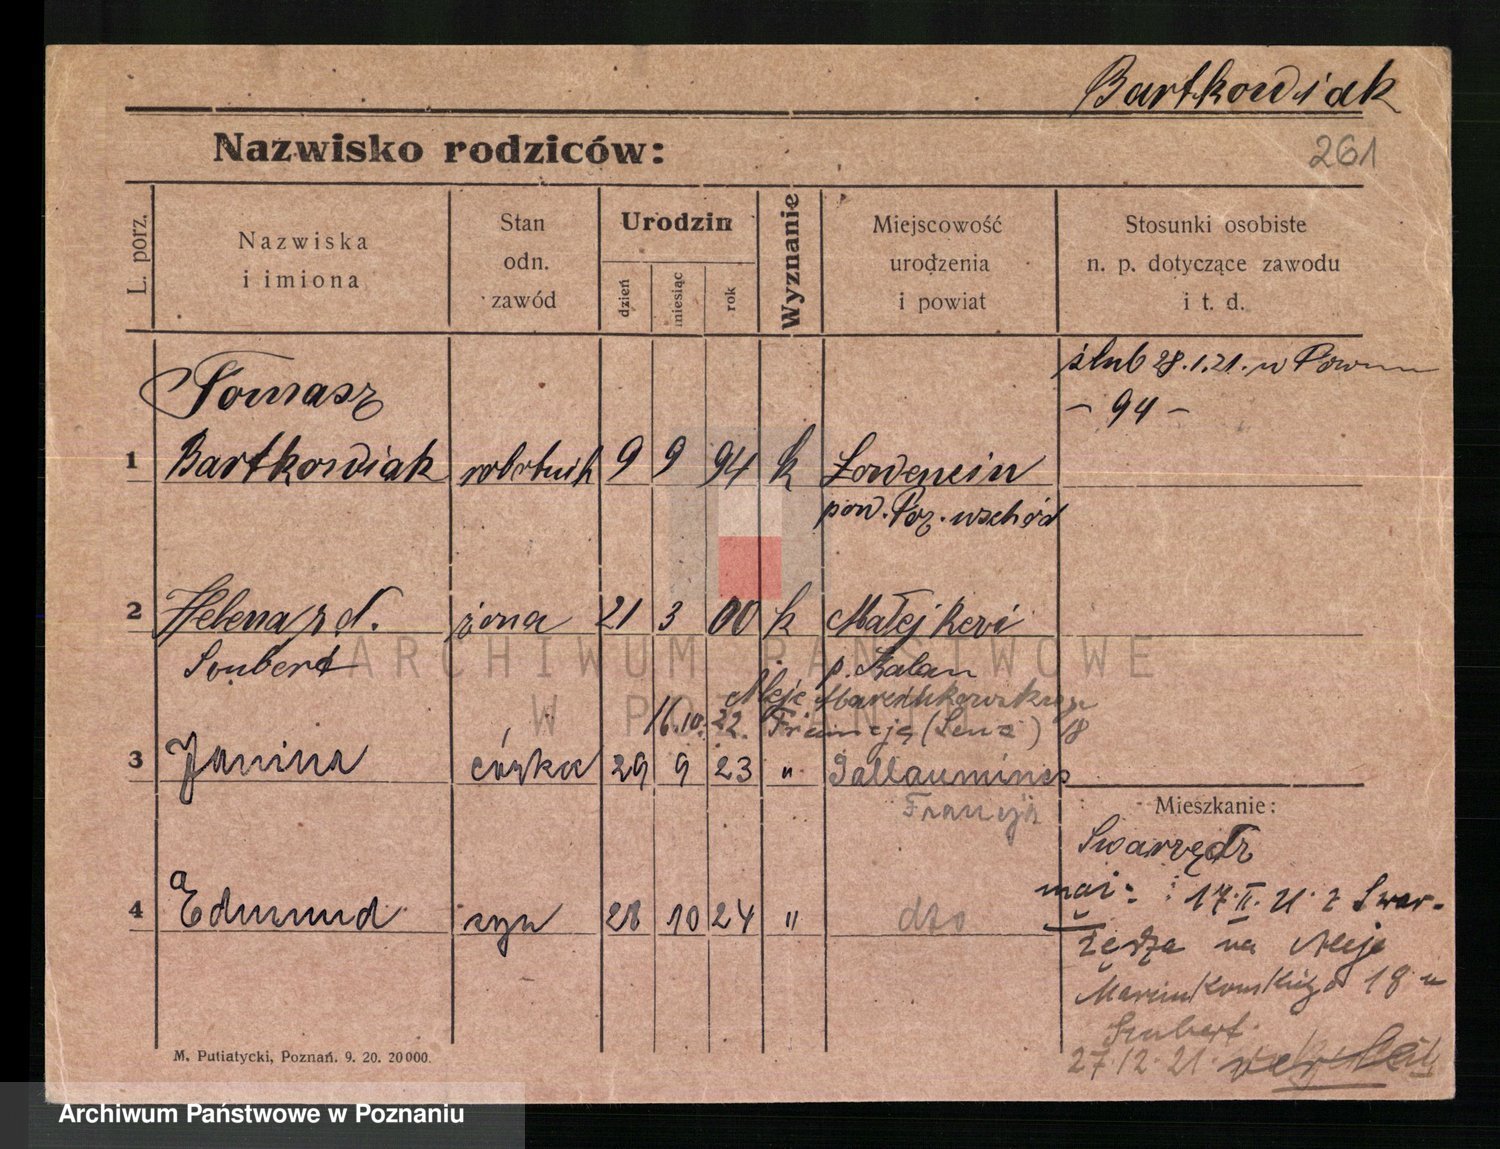 Bartkowiak
Nazwisko rodziców:
261
L. porz.
Nazwiska
i imiona
Stan
odn.
zawód
Urodzin
dzień
miesiąc
rok
Wyznanie
Miejscowość
urodzenia
i powiat
Stosunki osobiste
n. p. dotyczące zawodu
i t. d.
ślub 28.1.21. w
- 94 -
Tomasz
1 Bartkowiak robotnik 9 9 94 k Łowencin
pow. Poz. wschód
2 Helena z d. żona 21 3 00 k Małej
Szubert
16.10.22. Francja (Lens) 18
3 Janina córka 29 9 23 " Sallaumines
Francja
Mieszkanie:
Swarzędz
17.II.21 z Swar-
4 Edmund syn 28 10 24 " dto
zędza na Aleje
Marcinkowskiego 18 u
Szubert.
27/12.21.
M. Putiatycki, Poznań. 9. 20. 20000.
ARCHIWUM PAŃSTWOWE
W POZNANIU
Archiwum Państwowe w Poznaniu